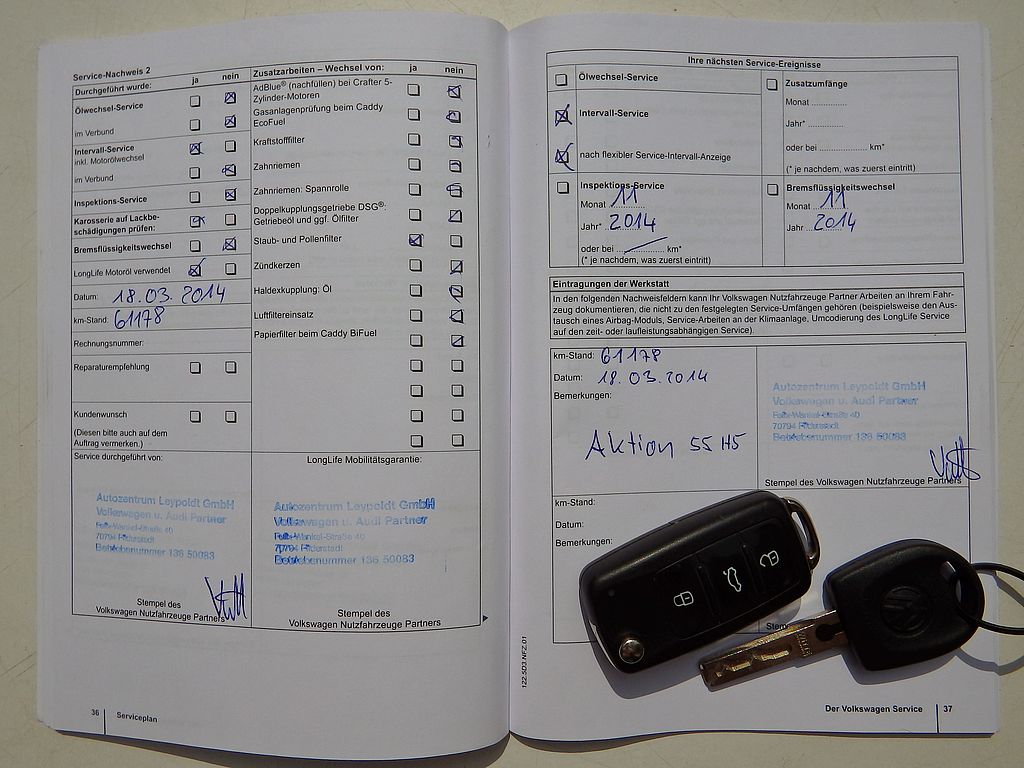 Service-Nachweis 2
Durchgeführt wurde: ja nein
Ölwechsel-Service
im Verbund
Intervall-Service
inkl. Motorölwechsel
im Verbund
Inspektions-Service
Karosserie auf Lackbe-
schädigungen prüfen:
Bremsflüssigkeitswechsel
LongLife Motoröl verwendet
Datum: 18.03.2014
km-Stand: 61178
Rechnungsnummer:
Reparaturempfehlung
Kundenwunsch
(Diesen bitte auch auf dem
Auftrag vermerken.)
Service durchgeführt von:
Autozentrum Leypoldt GmbH
Volkswagen u. Audi Partner
Felix-Wankel-Straße 40
70794 Filderstadt
Betriebsnummer 136 50083
Stempel des
Volkswagen Nutzfahrzeuge Partners
Zusatzarbeiten – Wechsel von: ja nein
AdBlue® (nachfüllen) bei Crafter 5-
Zylinder-Motoren
Gasanlagenprüfung beim Caddy
EcoFuel
Kraftstofffilter
Zahnriemen
Zahnriemen: Spannrolle
Doppelkupplungsgetriebe DSG®:
Getriebeöl und ggf. Ölfilter
Staub- und Pollenfilter
Zündkerzen
Haldexkupplung: Öl
Luftfiltereinsatz
Papierfilter beim Caddy BiFuel
LongLife Mobilitätsgarantie:
Autozentrum Leypoldt GmbH
Volkswagen u. Audi Partner
Felix-Wankel-Straße 40
70794 Filderstadt
Betriebsnummer 136 50083
Stempel des
Volkswagen Nutzfahrzeuge Partners
36 Serviceplan
Ihre nächsten Service-Ereignisse
Ölwechsel-Service
Intervall-Service
nach flexibler Service-Intervall-Anzeige
Zusatzumfänge
Monat ............
Jahr* ............
oder bei ............ km*
(* je nachdem, was zuerst eintritt)
Inspektions-Service
Monat 11
Jahr* 2014
oder bei ............ km*
(* je nachdem, was zuerst eintritt)
Bremsflüssigkeitswechsel
Monat 11
Jahr 2014
Eintragungen der Werkstatt
In den folgenden Nachweisfeldern kann Ihr Volkswagen Nutzfahrzeuge Partner Arbeiten an Ihrem Fahr-
zeug dokumentieren, die nicht zu den festgelegten Service-Umfängen gehören (beispielsweise den Aus-
tausch eines Airbag-Moduls, Service-Arbeiten an der Klimaanlage, Umcodierung des LongLife Service
auf den zeit- oder laufleistungsabhängigen Service).
km-Stand: 61178
Datum: 18.03.2014
Bemerkungen:
Aktion 55 H5
Autozentrum Leypoldt GmbH
Volkswagen u. Audi Partner
Felix-Wankel-Straße 40
70794 Filderstadt
Betriebsnummer 136 50083
Stempel des Volkswagen Nutzfahrzeuge Partners
km-Stand:
Datum:
Bemerkungen:
Stem
122.5D3.NFZ.01
Der Volkswagen Service 37